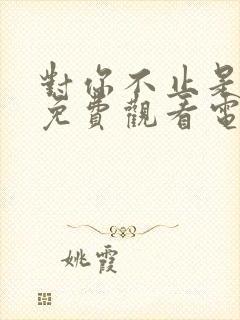 對你不止是
免費觀看電
姚霞